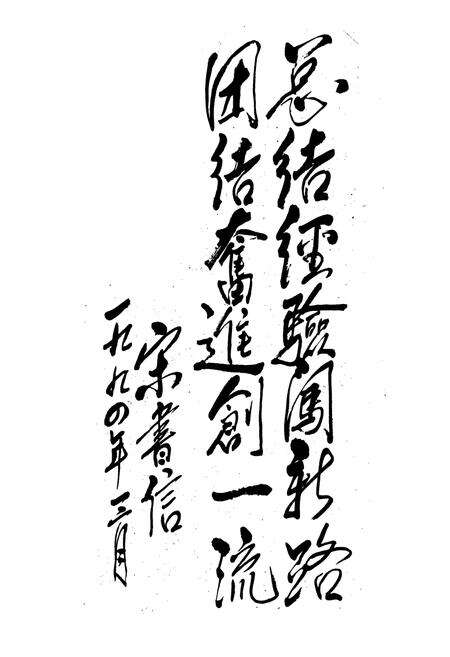 总结經驗闖新路
团结奮進創一流
宋書信
一九九四年三月